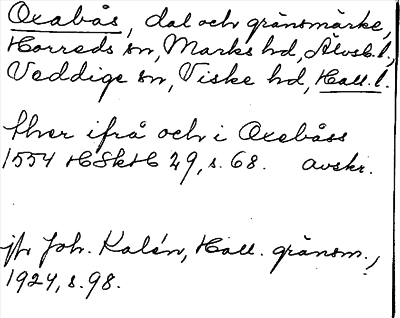 Oxabås, dal och gränsmärke,
Horreds sn, Marks hd, Älvsb. l.,
Veddige sn, Viske hd, Hall. l.
ther ifrå och i Oxebåss
1554 HSkH 29, s. 68. avskr.
jfr Joh. Kalén, Hall. gränsm.,
1924, s. 98.